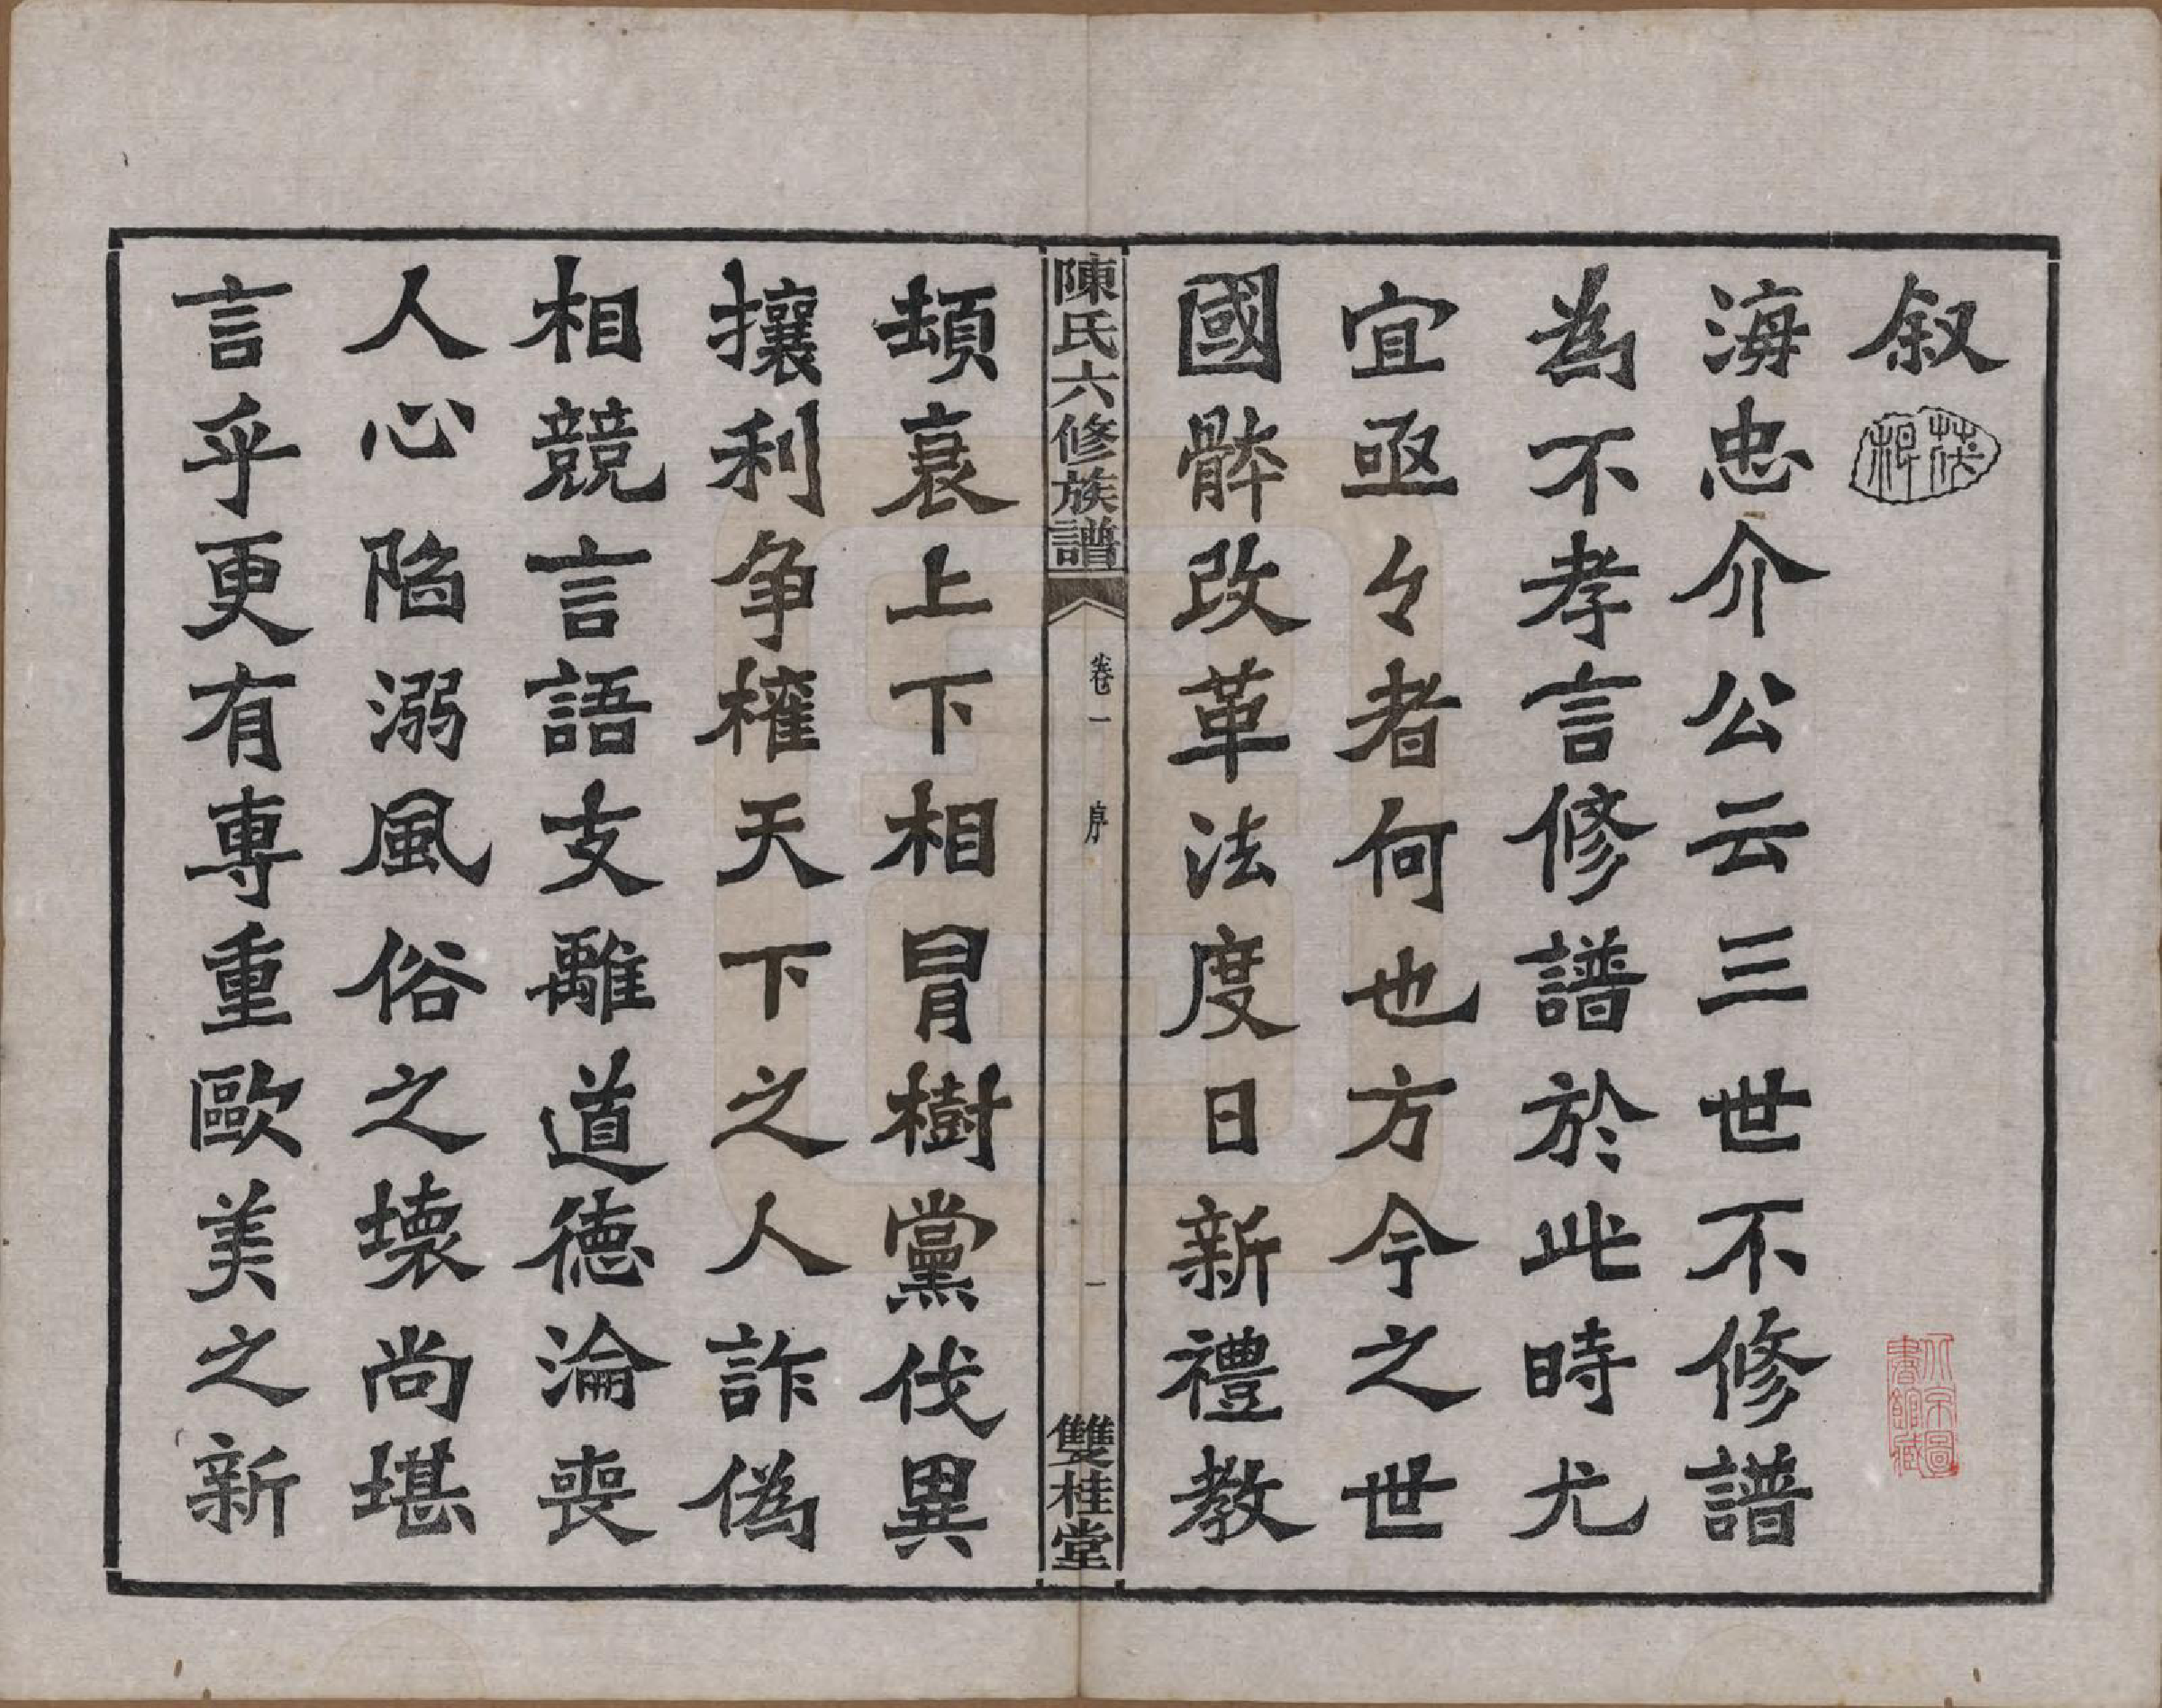 叙
海忠介公云三世不修譜
為不孝言修譜於此時尤
宜亟々者何也方今之世
國骵改革法度日新禮教
陳氏六修族譜
卷一
序
一
雙桂堂
頽衰上下相冒樹黨伐異
攘利争權天下之人詐偽
相競言語支離道德淪喪
人心陷溺風俗之壞尚堪
言乎更有專重歐美之新